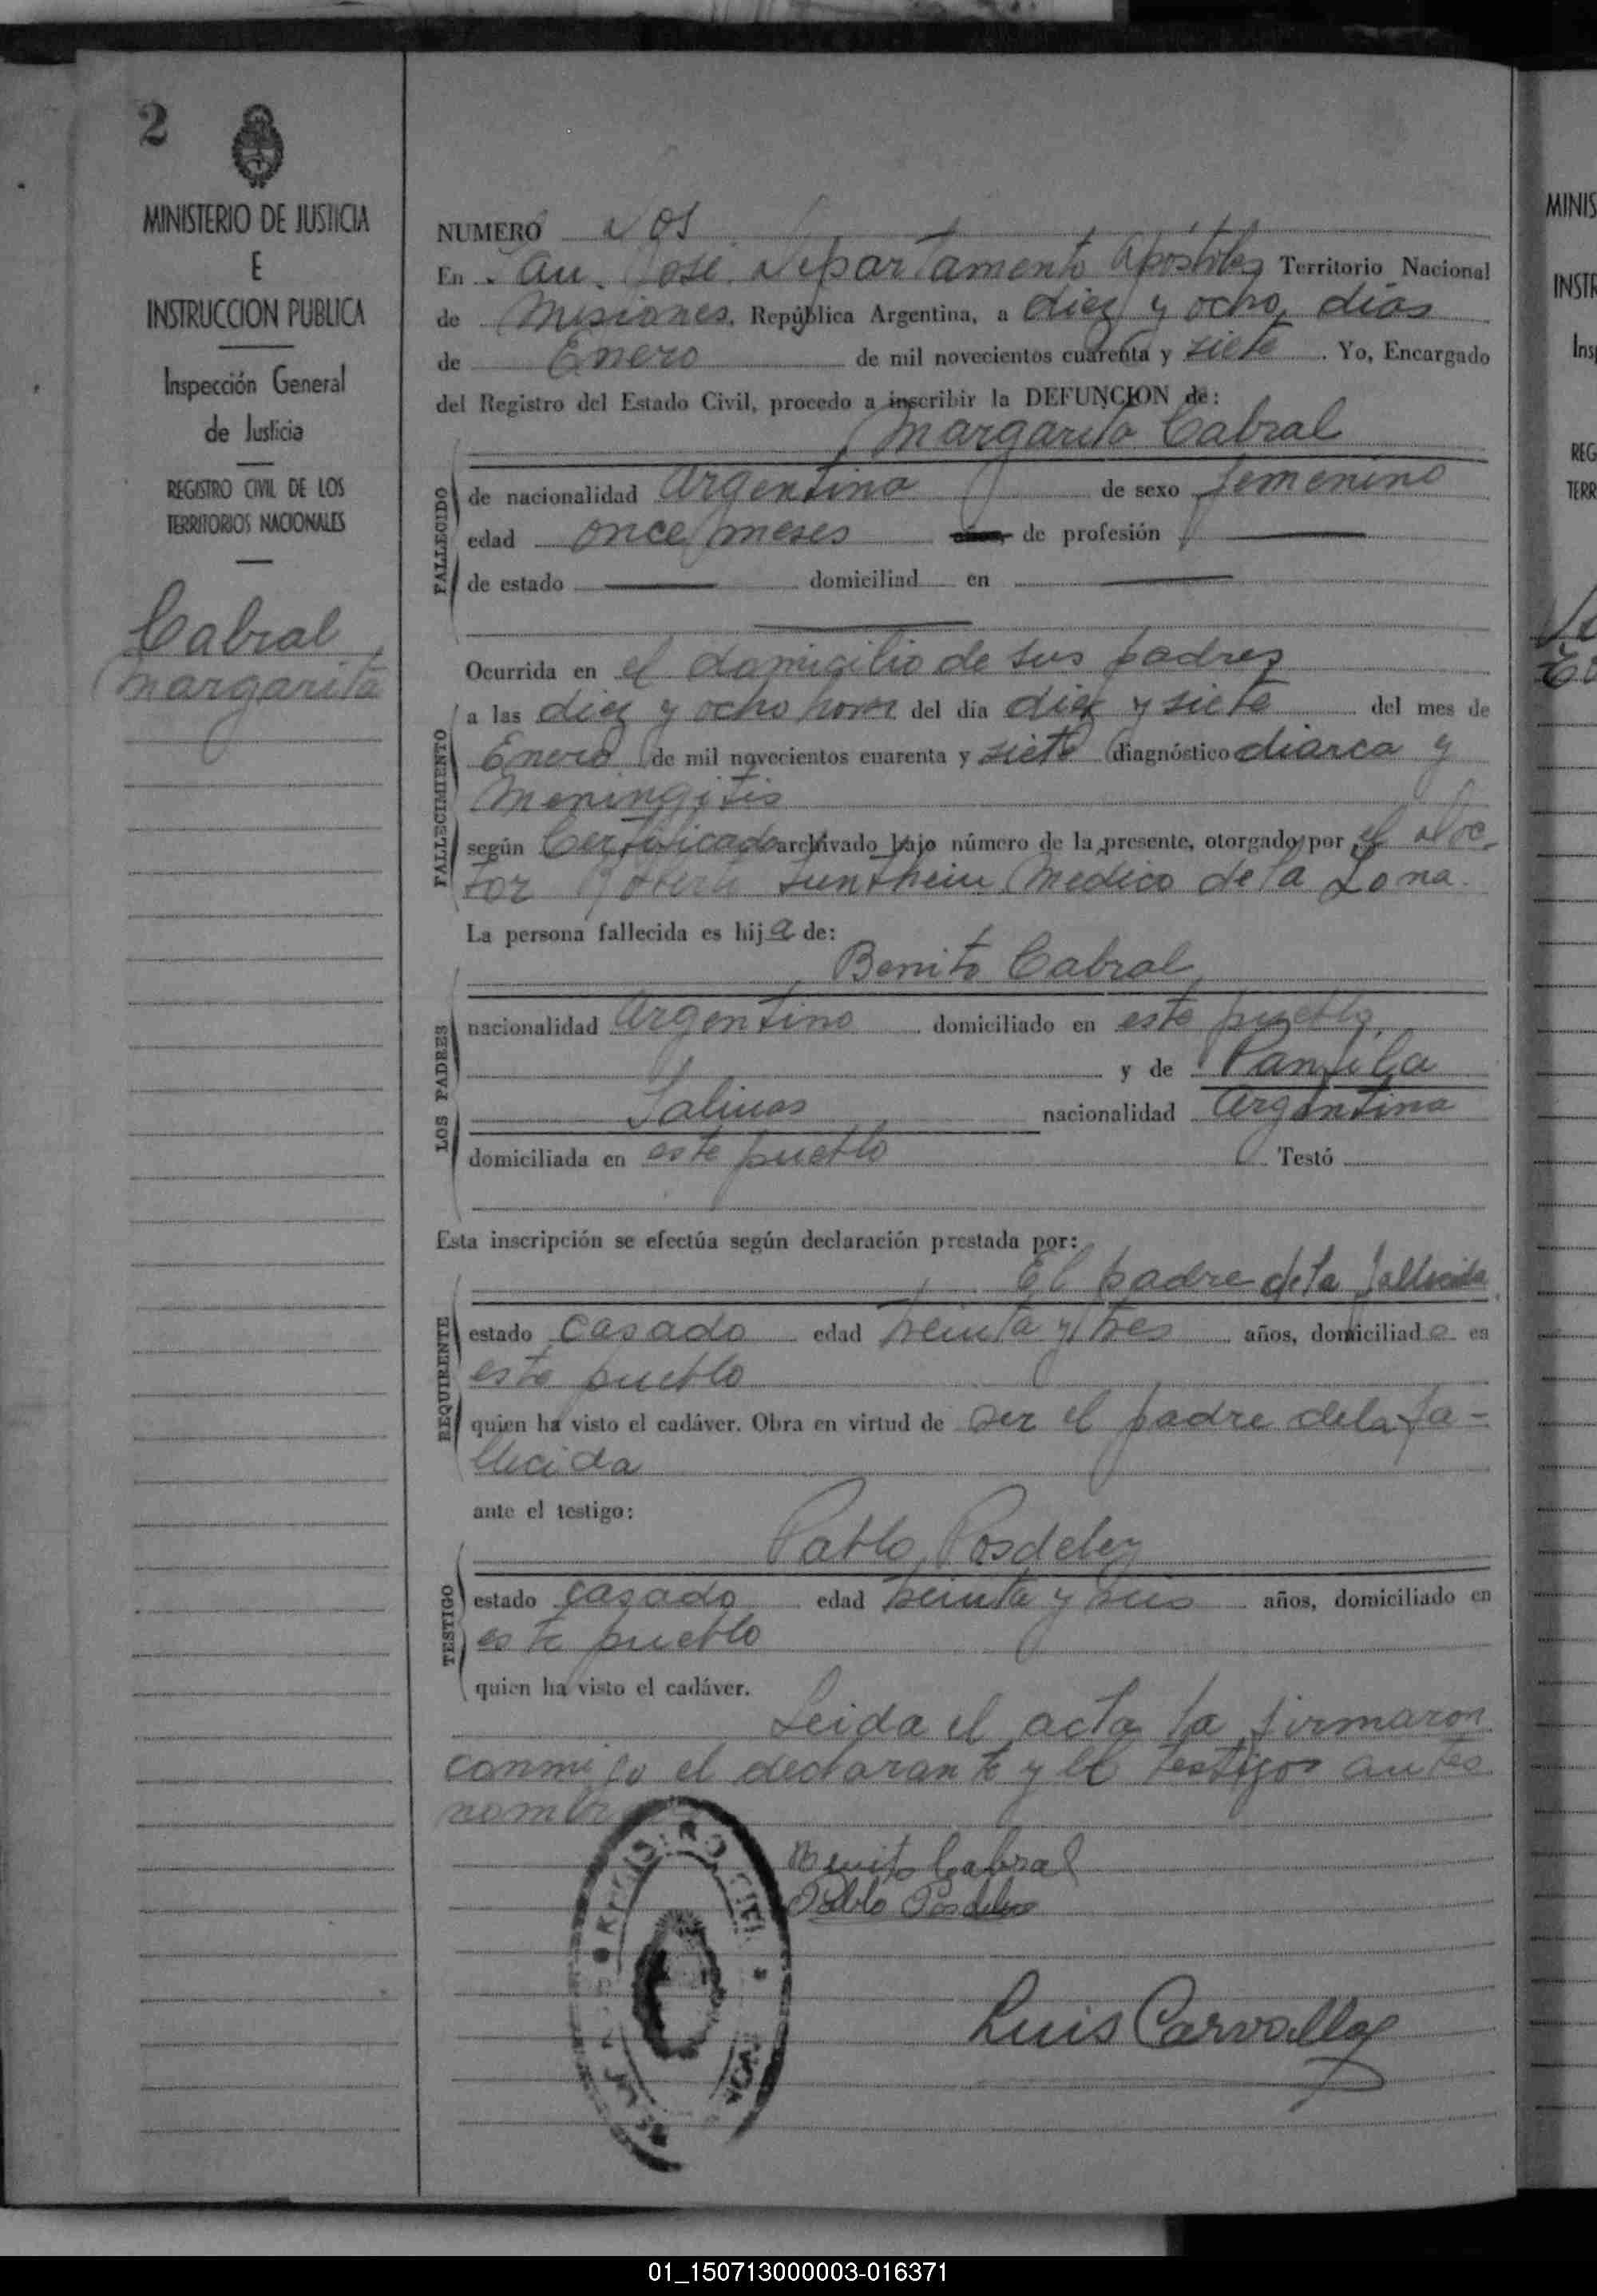 2
MINISTERIO DE JUSTICIA
E
INSTRUCCION PUBLICA
Inspección General
de Justicia
REGISTRO CIVIL DE LOS
TERRITORIOS NACIONALES
Cabral
Margarita
NUMERO Dos
En San José Departamento Apóstoles Territorio Nacional
de Misiones, República Argentina, a diez y ocho dias
de Enero de mil novecientos cuarenta y siete. Yo, Encargado
del Registro del Estado Civil, procedo a inscribir la DEFUNCION de:
Margarita Cabral
FALLECIDO
de nacionalidad Argentina de sexo femenino
edad once meses de profesión
de estado domiciliad en
FALLECIMIENTO
Ocurrida en el domicilio de sus padres
a las diez y ocho horas del día diez y siete del mes de
Enero de mil novecientos cuarenta y siete diagnóstico diarea y
Meningitis
según Certificado archivado bajo número de la presente, otorgado por el Doc-
tor Roberto Medico de la Zona.
La persona fallecida es hija de:
LOS PADRES
Benito Cabral
nacionalidad Argentino domiciliado en este pueblo,
y de Panfila
Salinas nacionalidad Argentina
domiciliada en este pueblo Testó
Esta inscripción se efectúa según declaración prestada por:
REQUIRENTE
El padre de la fallecida
estado casado edad treinta y tres años, domiciliado en
este pueblo
quien ha visto el cadáver. Obra en virtud de ser el padre de la fa-
llecida
ante el testigo:
TESTIGO
Pablo Posdeley
estado casado edad treinta y seis años, domiciliado en
este pueblo
quien ha visto el cadáver.
Leida el acta la firmaron
conmigo el declarante y el testigos antes
nombr
REGISTRO CIVIL
Benito Cabral
Pablo Posdeley
Luis Carvallo
MINIS
INSTR
Ins
REG
TERR
01_150713000003-016371